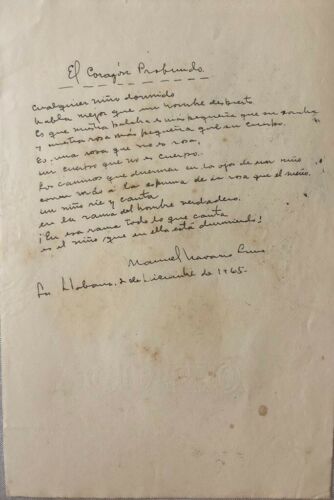 El Corazón Profundo.
Cualquier niño dormido
habla mejor que un hombre despierto
Es que nuestra palabra es más pequeña que su sombra
y nuestra rosa más pequeña que su cuerpo.
Es una rosa que no es rosa,
un cuerpo que no es cuerpo.
Los caminos que duermen en los ojos de un niño
más a la espuma de la rosa que el sueño.
un niño ríe y canta
en la rama del hombre verdadero.
¡En esa rama todo lo que canta
es el niño que en ella está durmiendo!
Manuel Navarro Luna
La Habana, 2 de Diciembre de 1965.